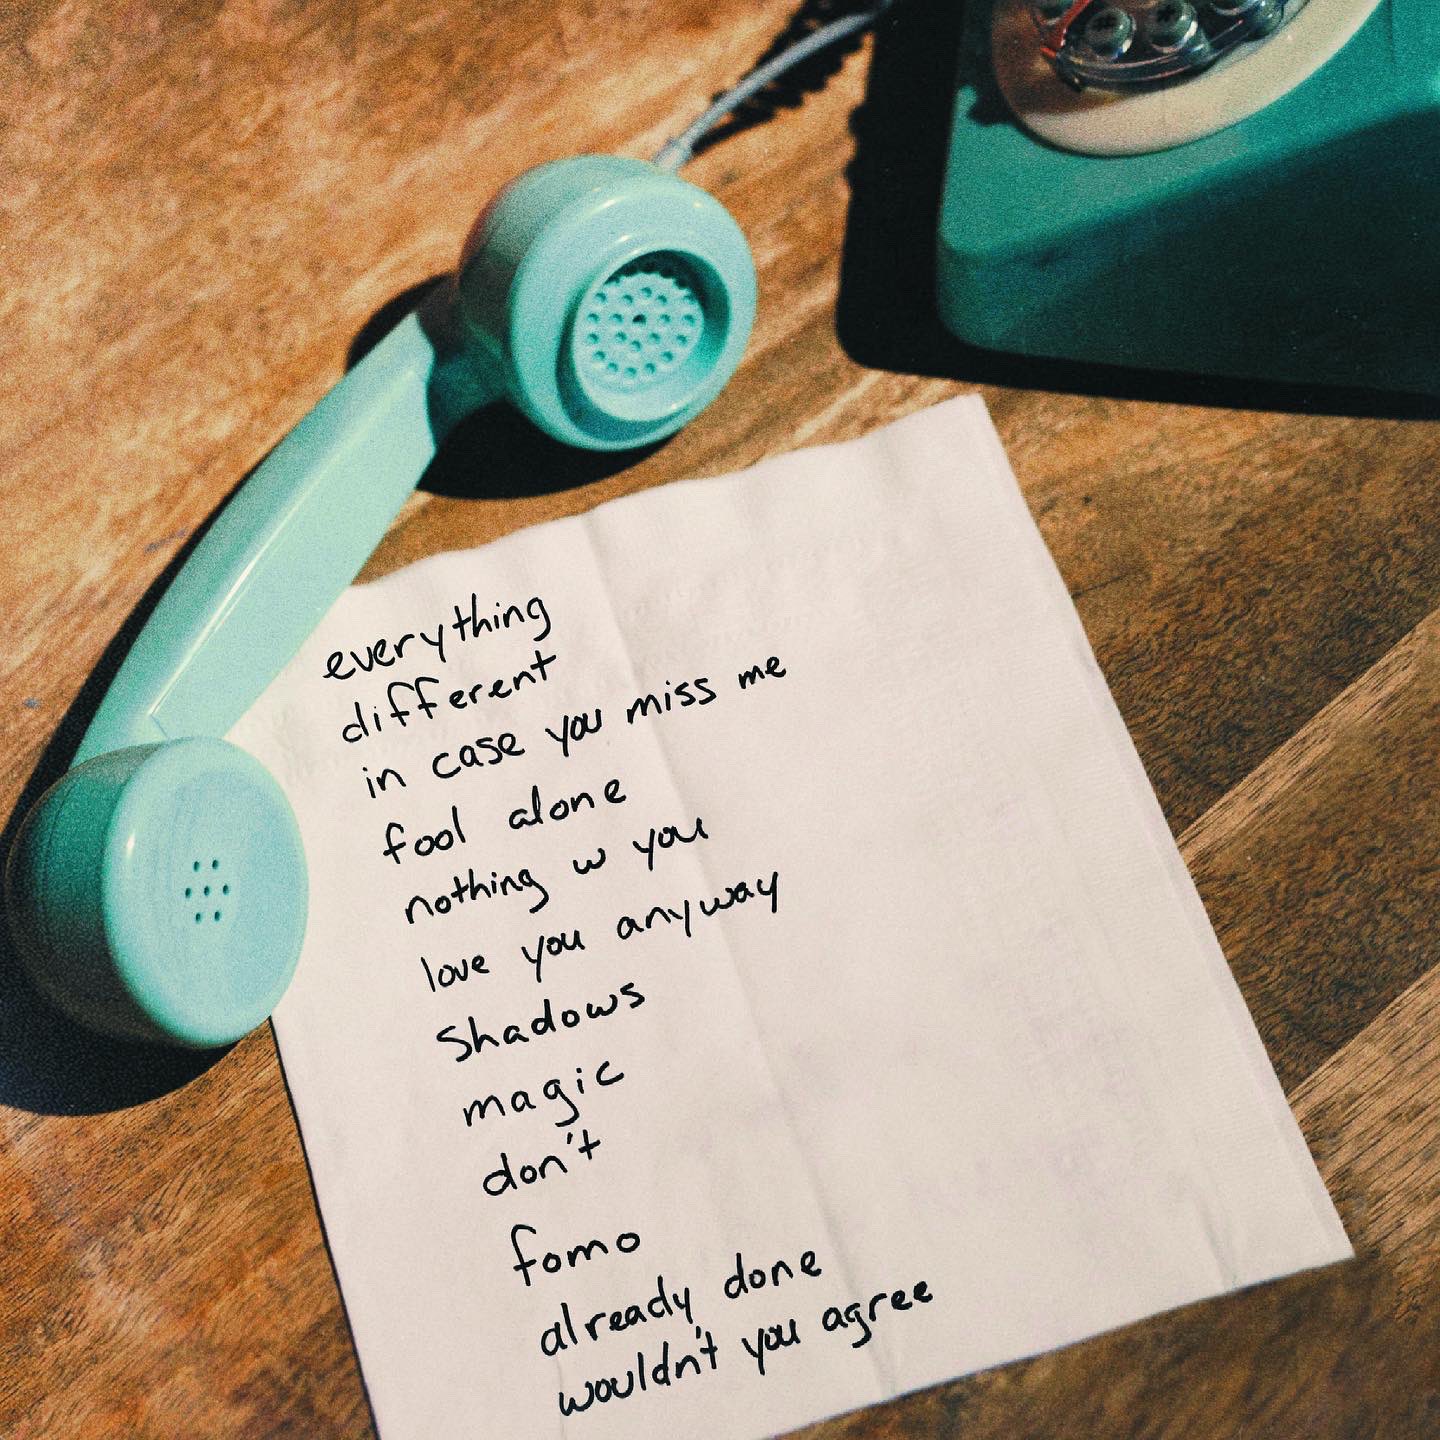 everything
different
in case you miss me
fool alone
nothing w you
love you anyway
Shadows
magic
don't
fomo
already done
wouldn't you agree